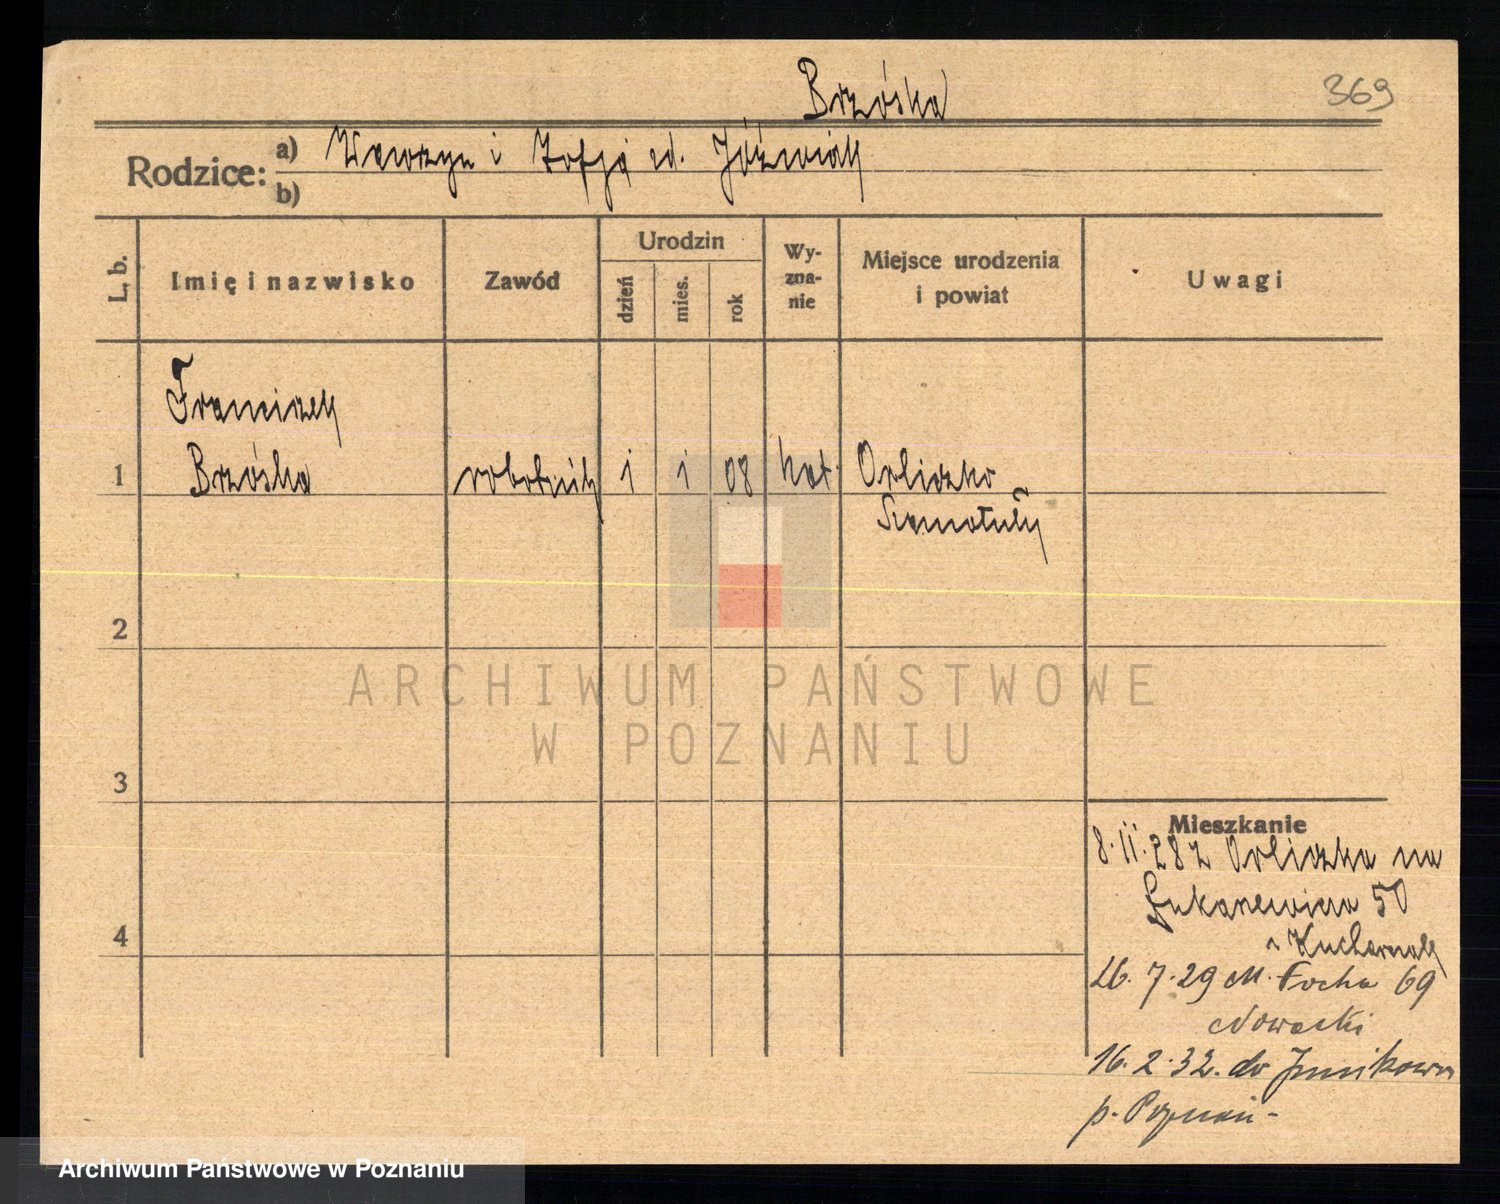 Brzóska
369
Rodzice:
a) Wawrzyn i Zofja ud. Jóźwiak
b)
L. b.
Imię i nazwisko
Zawód
Urodzin
dzień
mies.
rok
Wy-
zna-
nie
Miejsce urodzenia
i powiat
Uwagi
Franciszek
1 Brzóska robotnik 1 1 08 kat. Orliczko
Szamotuły
2
ARCHIWUM PAŃSTWOWE
W POZNANIU
3
Mieszkanie
8.11.28 z Orliczka na
50
4
Kucharczak
26.7.29 M. Focha 69
Nowacki
16.2.32. do Junikowa
p. Poznań -
Archiwum Państwowe w Poznaniu